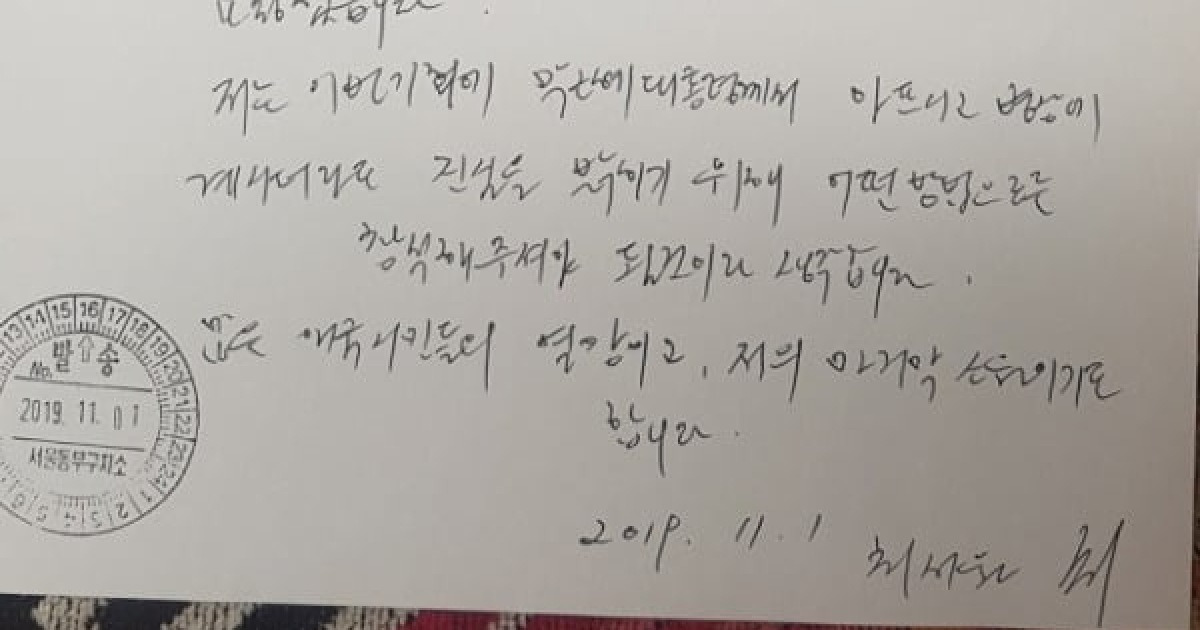 저는 이번기회에 박근혜대통령께서 아프시고 병상에
계시더라도 진실을 밝히기 위해 어떤방법으로든
참석해주셔야 될것이라 생각합니다.
모든 애국시민들의 열망이고, 저의 마지막 소원이기도
합니다.
2019. 11. 1 최서원 최
13 14 15 16 17 18 19 20 21 22 23 24 1 2 3 4 5 6
No. 발송
2019. 11. 01
서울동부구치소